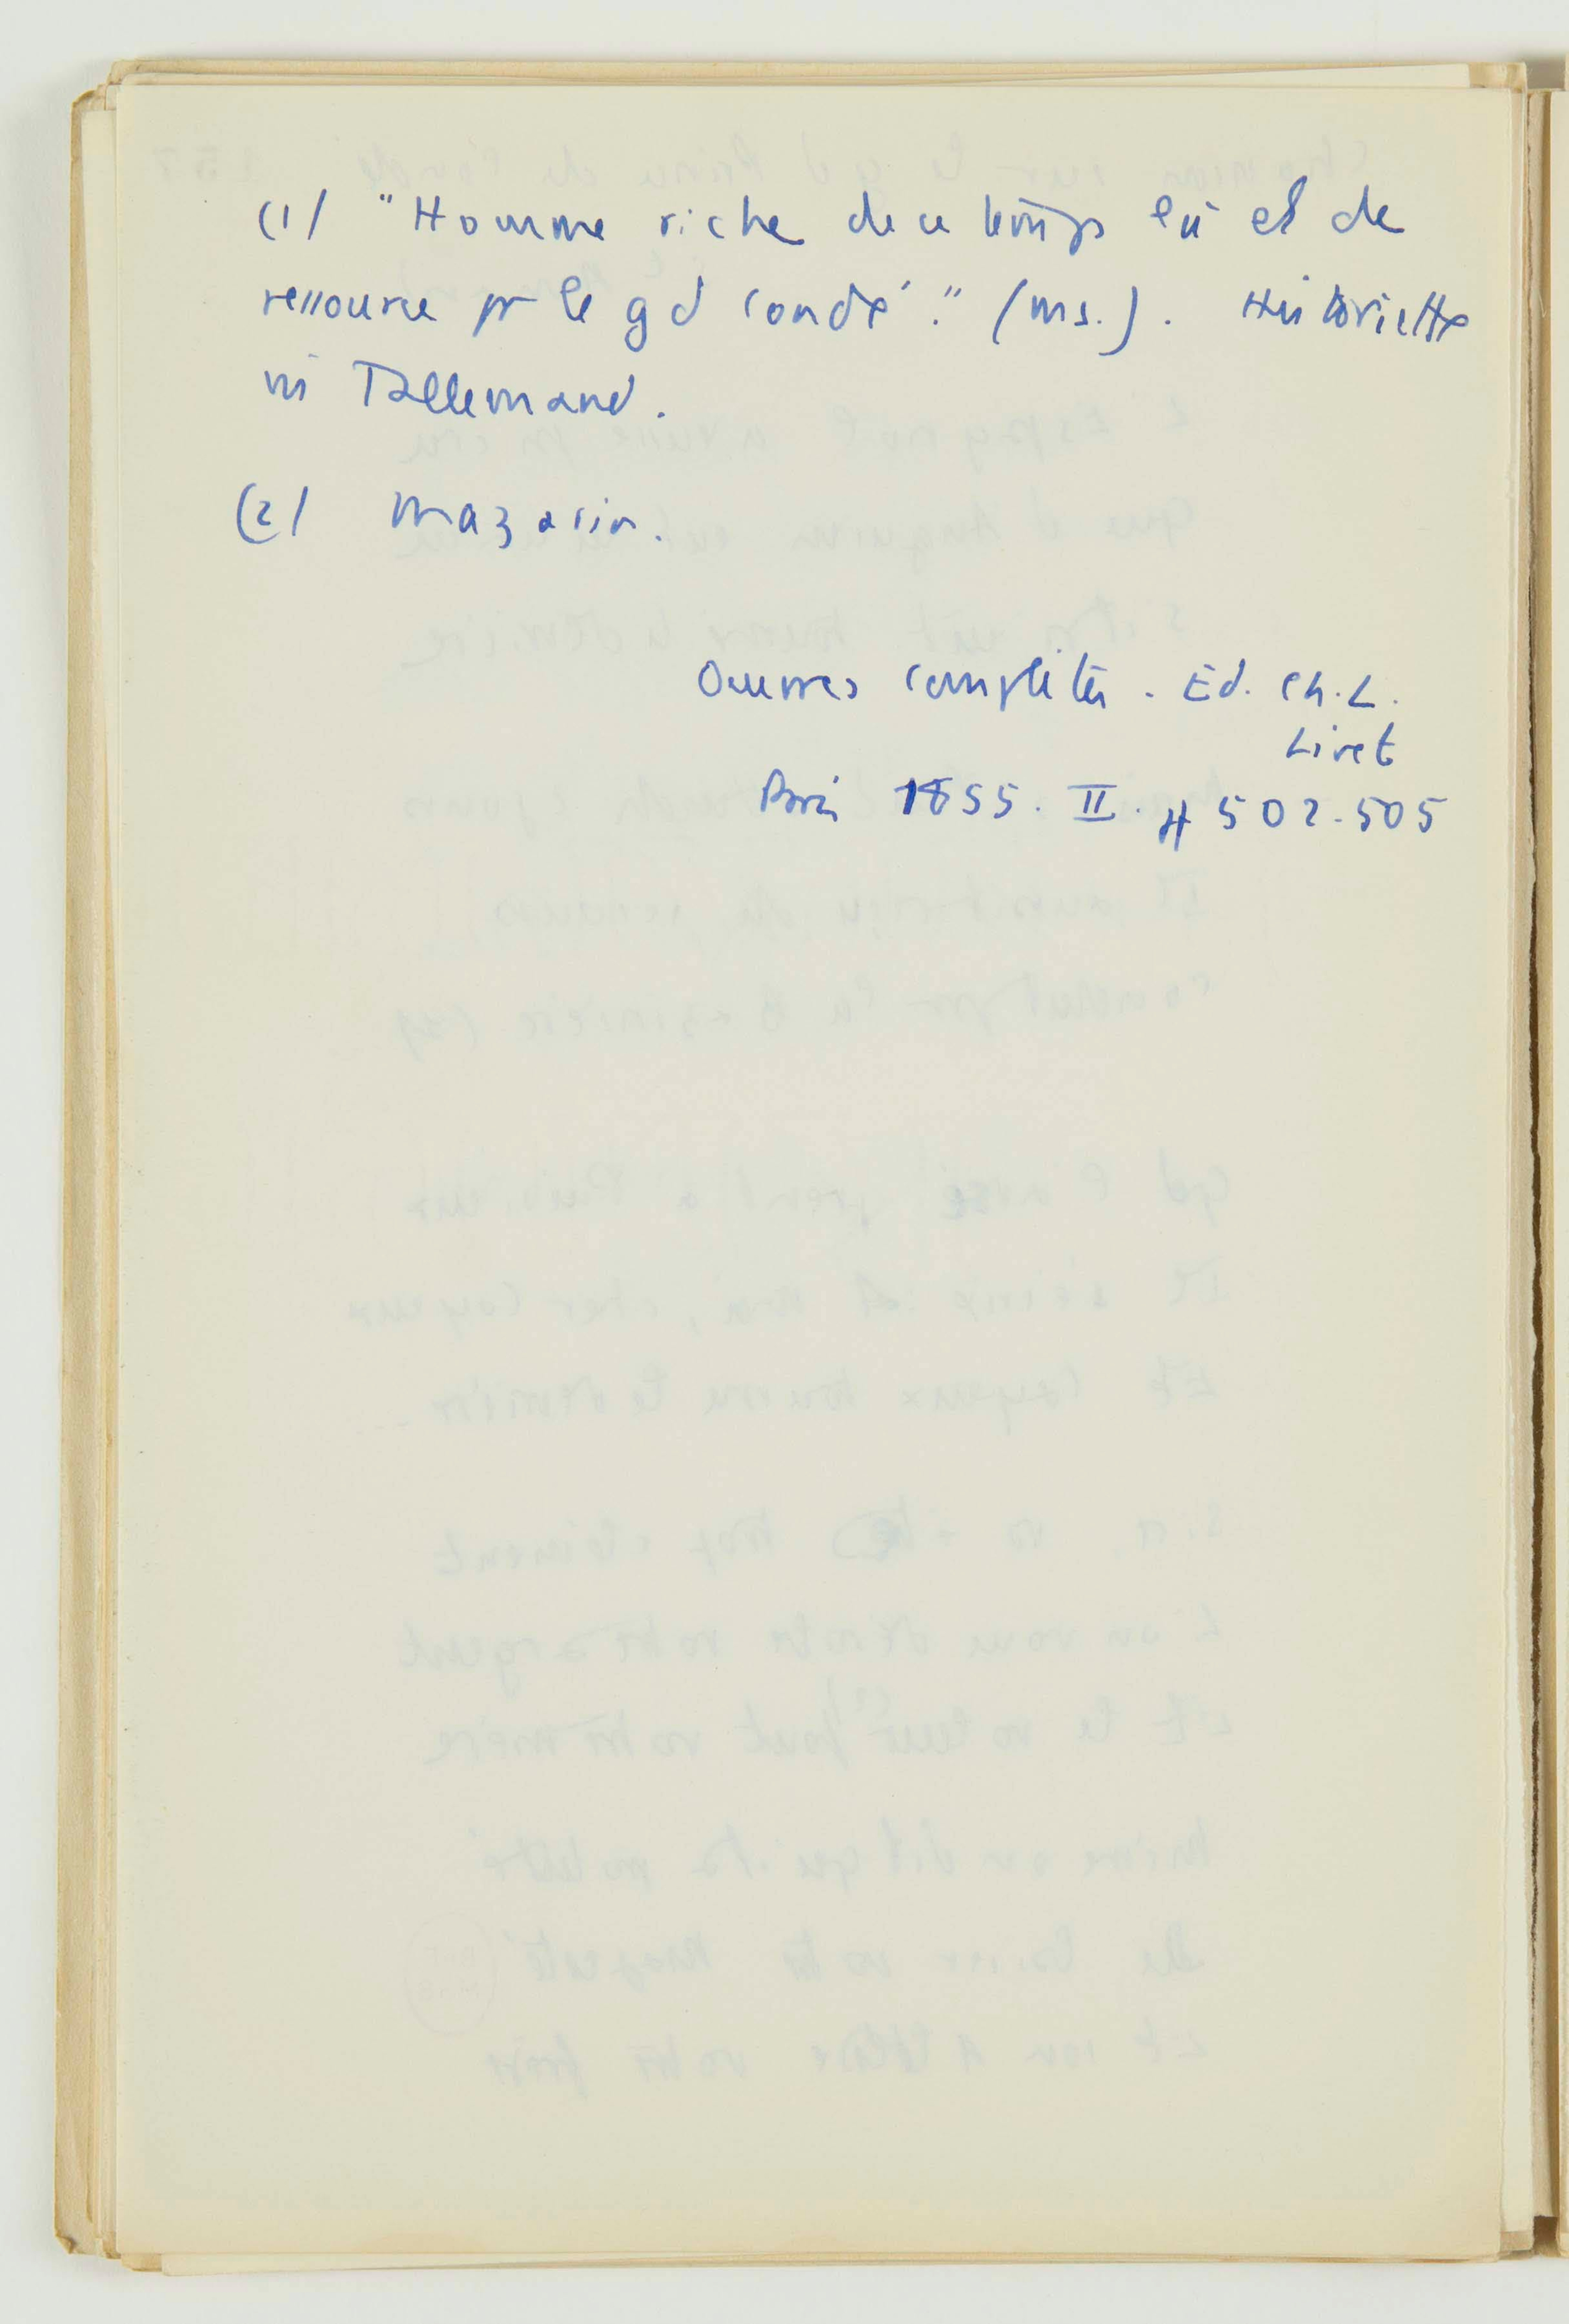 (1) "Homme riche de ce temps là et de
ressource pr le gd Condé." (ms.). Historiette
in Tallemand.
(2) Mazarin.
Oeuvres complètes. Ed. Ch. L.
Livet
Paris 1855. II. pp 502-505